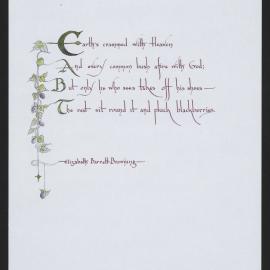 Earth's crammed with Heaven
And every common bush afire with God;
But only he who sees takes off his shoes—
The rest sit round it and pluck blackberries.
—Elizabeth Barrett Browning—